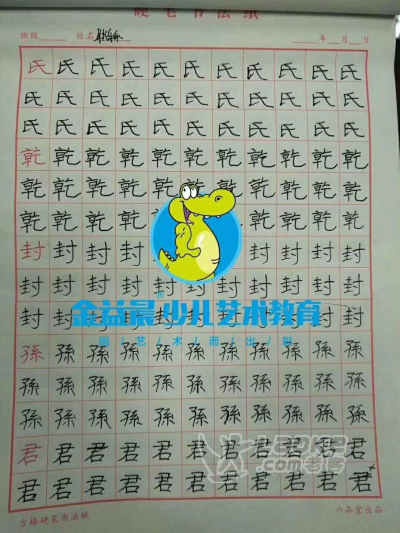 硬毛书法纸
班级 姓名 年 月 日
氏氏氏氏氏氏氏氏氏氏氏
氏氏氏氏氏氏氏氏氏氏氏
氏氏氏氏氏氏氏氏氏氏氏
乾乾乾乾乾乾乾乾乾乾乾
乾乾乾乾乾乾乾乾乾乾
乾乾乾乾乾乾乾乾
封封封封封封封封
封封封封封封封封
封封封封封封封封
金益晨少儿艺术教育
因/艺/术/而/出/彩
孫孫孫孫孫孫孫孫孫孫孫
孫孫孫孫孫孫孫孫孫孫孫
孫孫孫孫孫孫孫孫孫孫孫
君君君君君君君君君君君
君君君君君君君君君君君
方格硬毛书法纸 六品堂出品